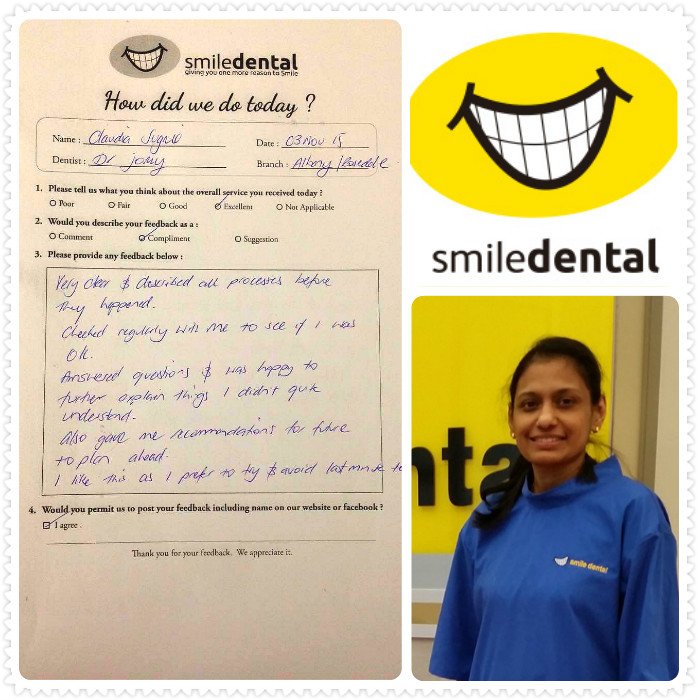 smiledental
giving you one more reason to Smile
How did we do today ?
Name : Claudia
Date : 03 Nov 15
Dentist : Dr Jomy
Branch : Albany / Rosedale
1. Please tell us what you think about the overall service you received today ?
Poor Fair Good Excellent Not Applicable
2. Would you describe your feedback as a :
Comment Compliment Suggestion
3. Please provide any feedback below :
Very clear & described all processes before
they happened.
Checked regularly with me to see if I was
OK.
Answered questions & was happy to
further explain things I didn't quite
understand.
Also gave me recommendations for future
to plan ahead.
I like this as I prefer to try & avoid last minute
4. Would you permit us to post your feedback including name on our website or facebook ?
I agree .
Thank you for your feedback. We appreciate it.
smiledental
nta
smile dental